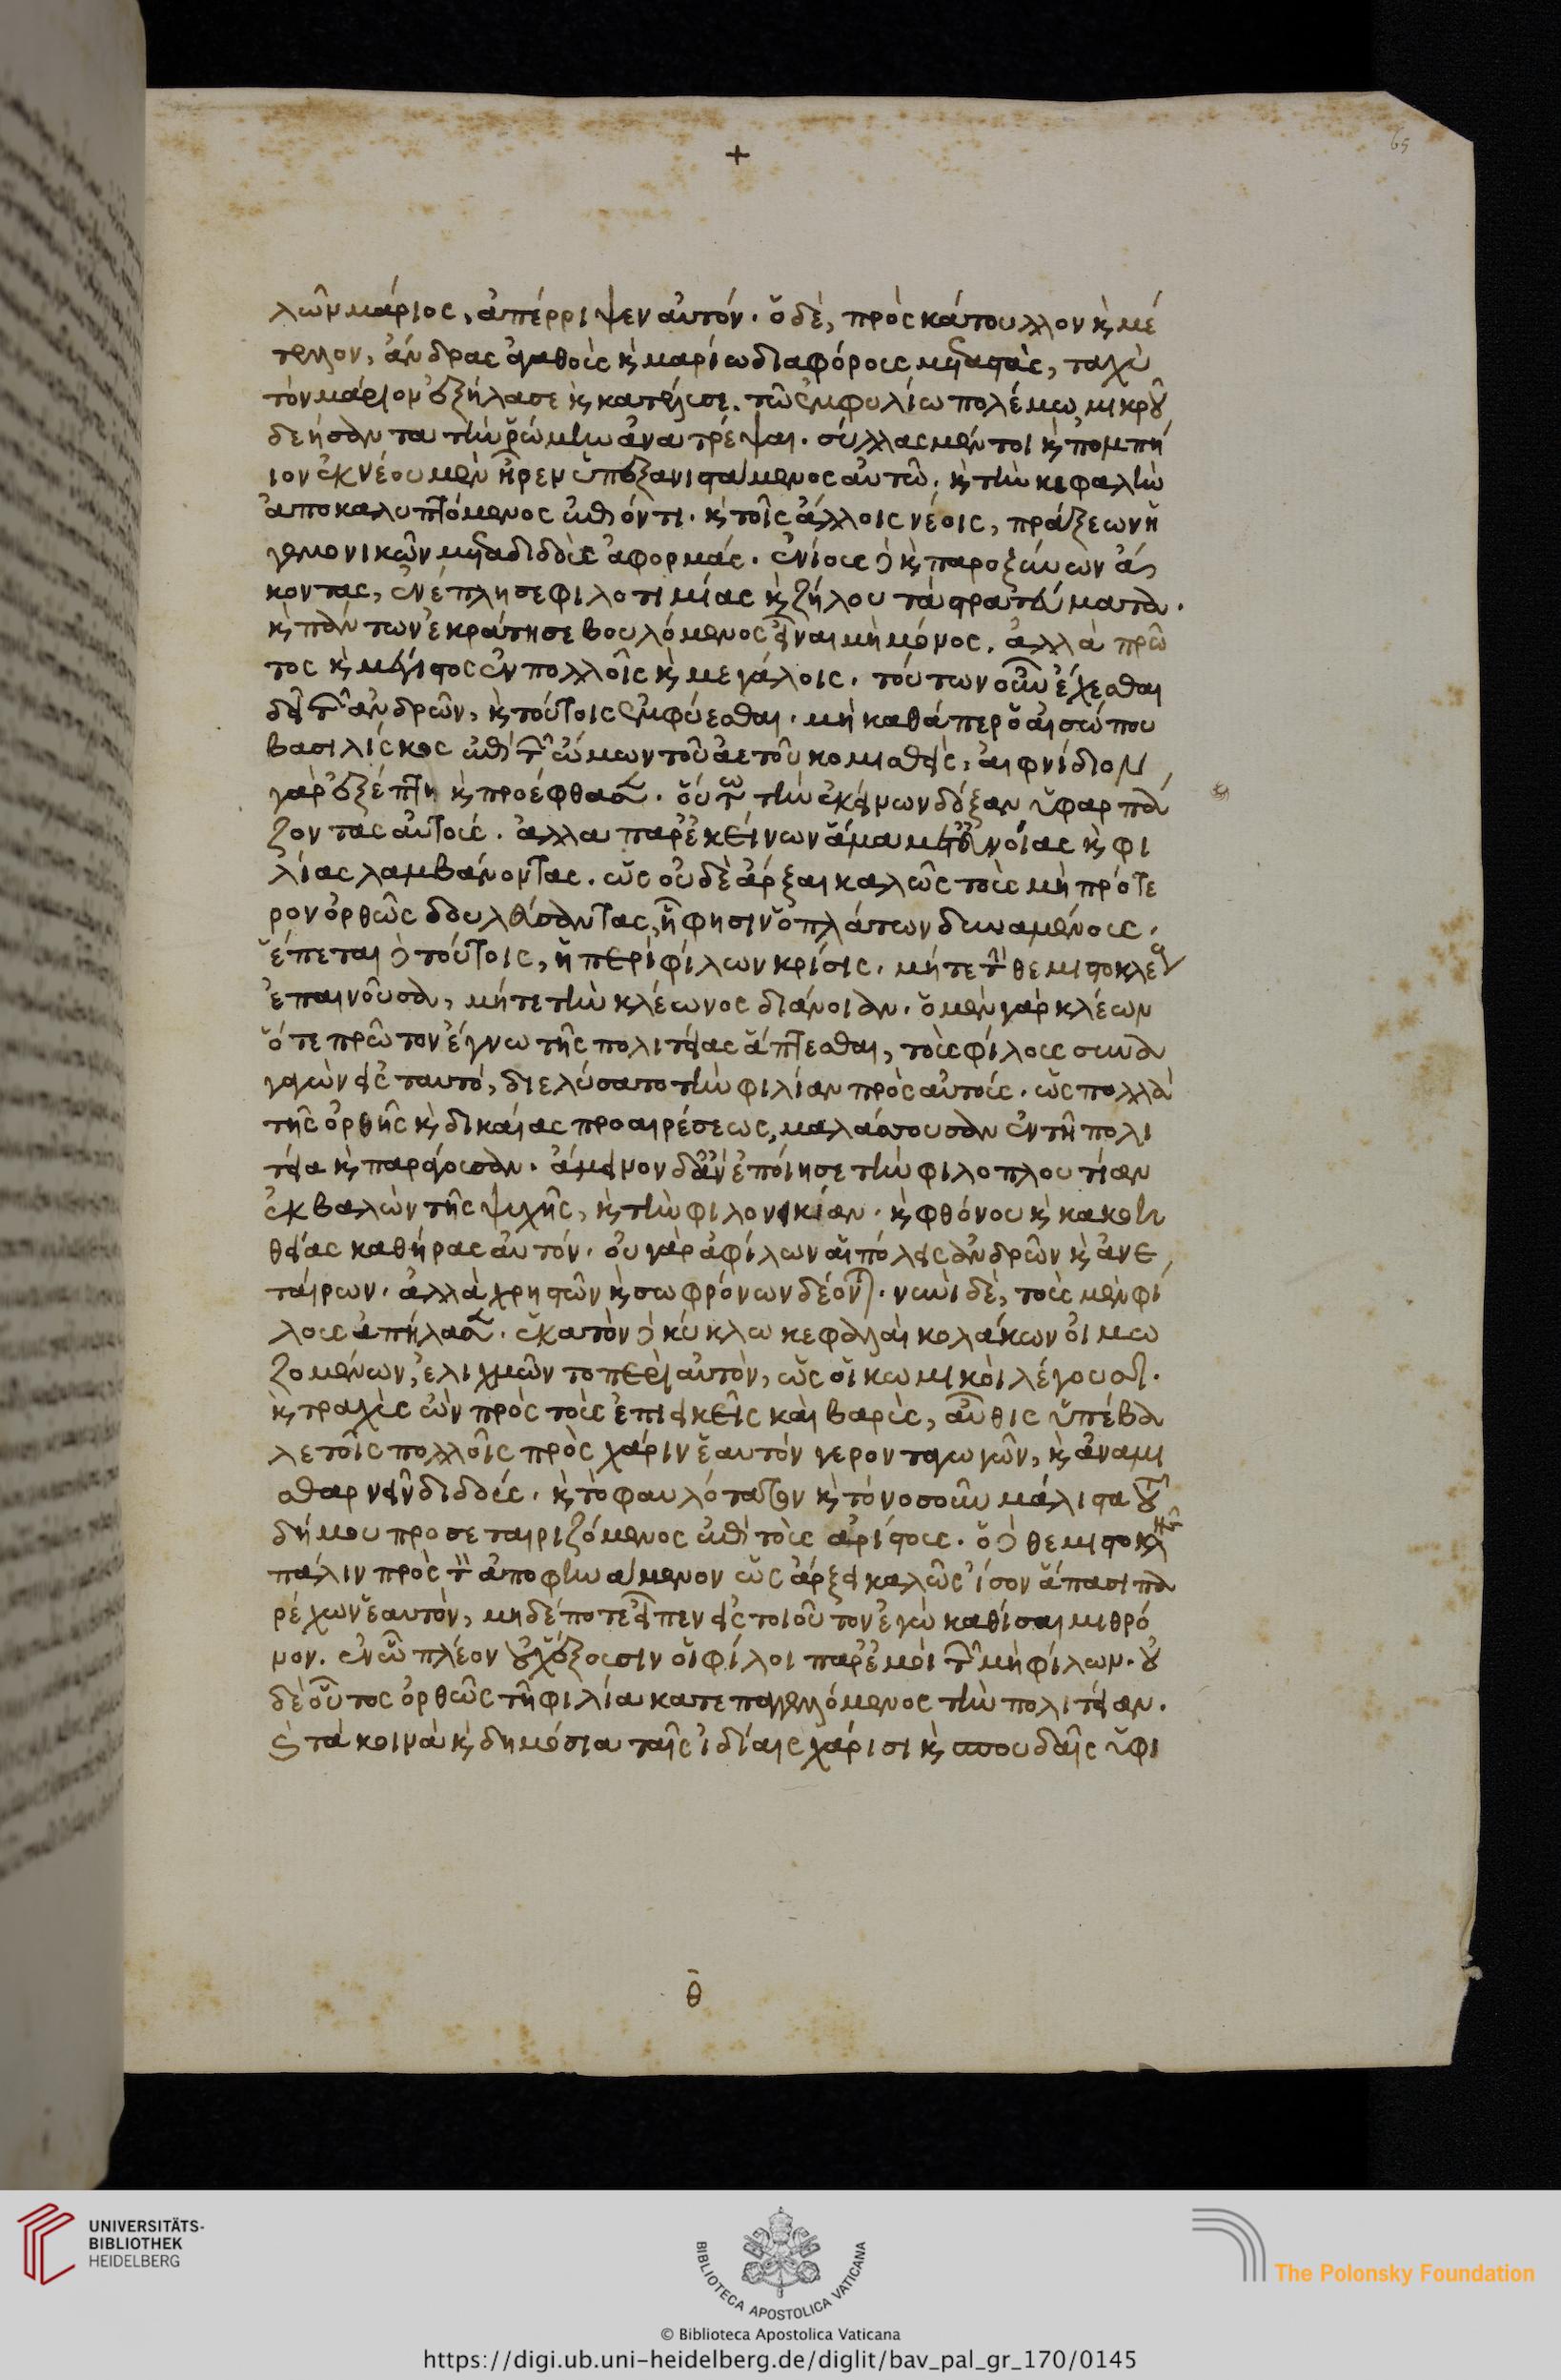 +
65
λῶν μάριος, ἀπέρριψεν αὐτόν. ὁ δὲ, πρὸς κάτουλλον κ̀ μέ
τελλον, ἄνδρας ἀγαθοὺς κ̀ μαρίω διαφόρους μεταστὰς, ταχὺ
τὸν μάριον ἐξήλασε κ̀ κατέλυσε. τῶ ἐμφυλίω πολέμω μικροῦ
δεήσαντα τὴν ῥώμην ἀνατρέψαι. σύλλας μέντοι κ̀ πομπή
ιον ἐκ νέου μὲν ἦρεν ὑπεξανιστάμενος αὐτῶ. κ̀ τὴν κεφαλὴν
ἀποκαλυπτόμενος ἐπιόντι. κ̀ τοῖς ἄλλοις νέοις, πράξεων ἡ
γεμονικῶν μεταδιδοὺς ἀφορμάς. ἐνίους δὲ κ̀ παροξύνων ἄ
κοντας, ἐνέπλησε φιλοτιμίας κ̀ ζήλου τὰ στρατεύματα.
κ̀ πάντων ἐκράτησε βουλόμενος εἶναι μὴ μόνος. ἀλλὰ πρῶ
τος κ̀ μέγιστος ἐν πολλοῖς κ̀ μεγάλοις. τούτων οὖν ἔχεσθαι
δεῖ τῶν ἀνδρῶν, κ̀ τούτοις ἐμφύεσθαι. μὴ καθάπερ ὁ αἰσώπου
βασιλίσκος ἐπὶ τῶν ὤμων τοῦ ἀετοῦ κομισθεὶς, αἰφνίδιον
γὰρ ἐξέπτη κ̀ προέφθασεν. οὕτω τὴν ἐκείνων δόξαν ὑφαρπά
ζοντας αὐτούς. ἀλλα παρ' ἐκείνων ἅμα μετ' εὐνοίας κ̀ φι
λίας λαμβάνοντας. ὡς οὐδὲ ἄρξαι καλῶς τοὺς μὴ πρότε
ρον ὀρθῶς δουλεύσαντας, ἧ φησιν ὁ πλάτων δυναμένους.
ἕπεται δὲ τούτοις, ἡ περὶ φίλων κρίσις. μήτε τὴν θεμιστοκλέους
ἐπαινοῦσα, μήτε τὴν κλέωνος διάνοιαν. ὁ μὲν γὰρ κλέων
ὅτε πρῶτον ἔγνω τῆς πολιτείας ἅπτεσθαι, τοὺς φίλους συνα
γαγὼν εἰς ταυτὸ, διελύσατο τὴν φιλίαν πρὸς αὐτούς. ὡς πολλὰ
τῆς ὀρθῆς κ̀ δικαίας προαιρέσεως, μαλάσσουσαν ἐν τῆ πολι
τεία κ̀ παράγουσαν. ἄμεινον δ' ἂν ἐποίησε τὴν φιλοπλουτίαν
ἐκβαλὼν τῆς ψυχῆς, κ̀ τὴν φιλονεικίαν. κ̀ φθόνου κ̀ κακοη
θείας καθήρας αὑτόν. οὐ γὰρ ἀφίλων αἱ πόλεις ἀνδρῶν κ̀ ἀνε
ταίρων. ἀλλὰ χρηστῶν κ̀ σωφρόνων δέονται. νυνὶ δὲ, τοὺς μὲν φί
λους ἀπήλασεν. ἑκατὸν δὲ κύκλω κεφαλαὶ κολάκων οἰμω
ζομένων, ἐλιχμῶντο περὶ αὐτὸν, ὡς οἱ κωμικοὶ λέγουσι.
κ̀ τραχὺς ὢν πρὸς τοὺς ἐπιεικεῖς καὶ βαρὺς, αὖθις ὑπέβα
λε τοῖς πολλοῖς πρὸς χάριν ἑαυτὸν γερονταγωγῶν, κ̀ ἀναμι
σθαρνεῖν διδούς. κ̀ τὸ φαυλότατον κ̀ τὸ νοσοῦν μάλιστα τοῦ
δήμου προσεταιριζόμενος ἐπὶ τοὺς ἀρίστους. ὁ δὲ θεμιστοκλῆς
πάλιν πρὸς τὸν ἀποφηνάμενον ὡς ἄρξει καλῶς ἴσον ἅπασι πα
ρέχων ἑαυτὸν, μηδέποτε εἶπεν εἰς τοιοῦτον ἐγὼ καθίσαιμι θρό
νον. ἐν ὧ πλέον οὐχ' ἕξουσιν οἱ φίλοι παρ' ἐμοὶ τῶν μὴ φίλων. οὐ
δὲ οὗτος ὀρθῶς τῆ φιλία κατεπαγγελλόμενος τὴν πολιτείαν.
κ̀ τὰ κοινὰ κ̀ δημόσια ταῖς ἰδίαις χάρισι κ̀ σπουδαῖς ὑφι
θ̄
UNIVERSITÄTS-
BIBLIOTHEK
HEIDELBERG
BIBLIOTECA APOSTOLICA VATICANA
The Polonsky Foundation
© Biblioteca Apostolica Vaticana
https://digi.ub.uni-heidelberg.de/diglit/bav_pal_gr_170/0145